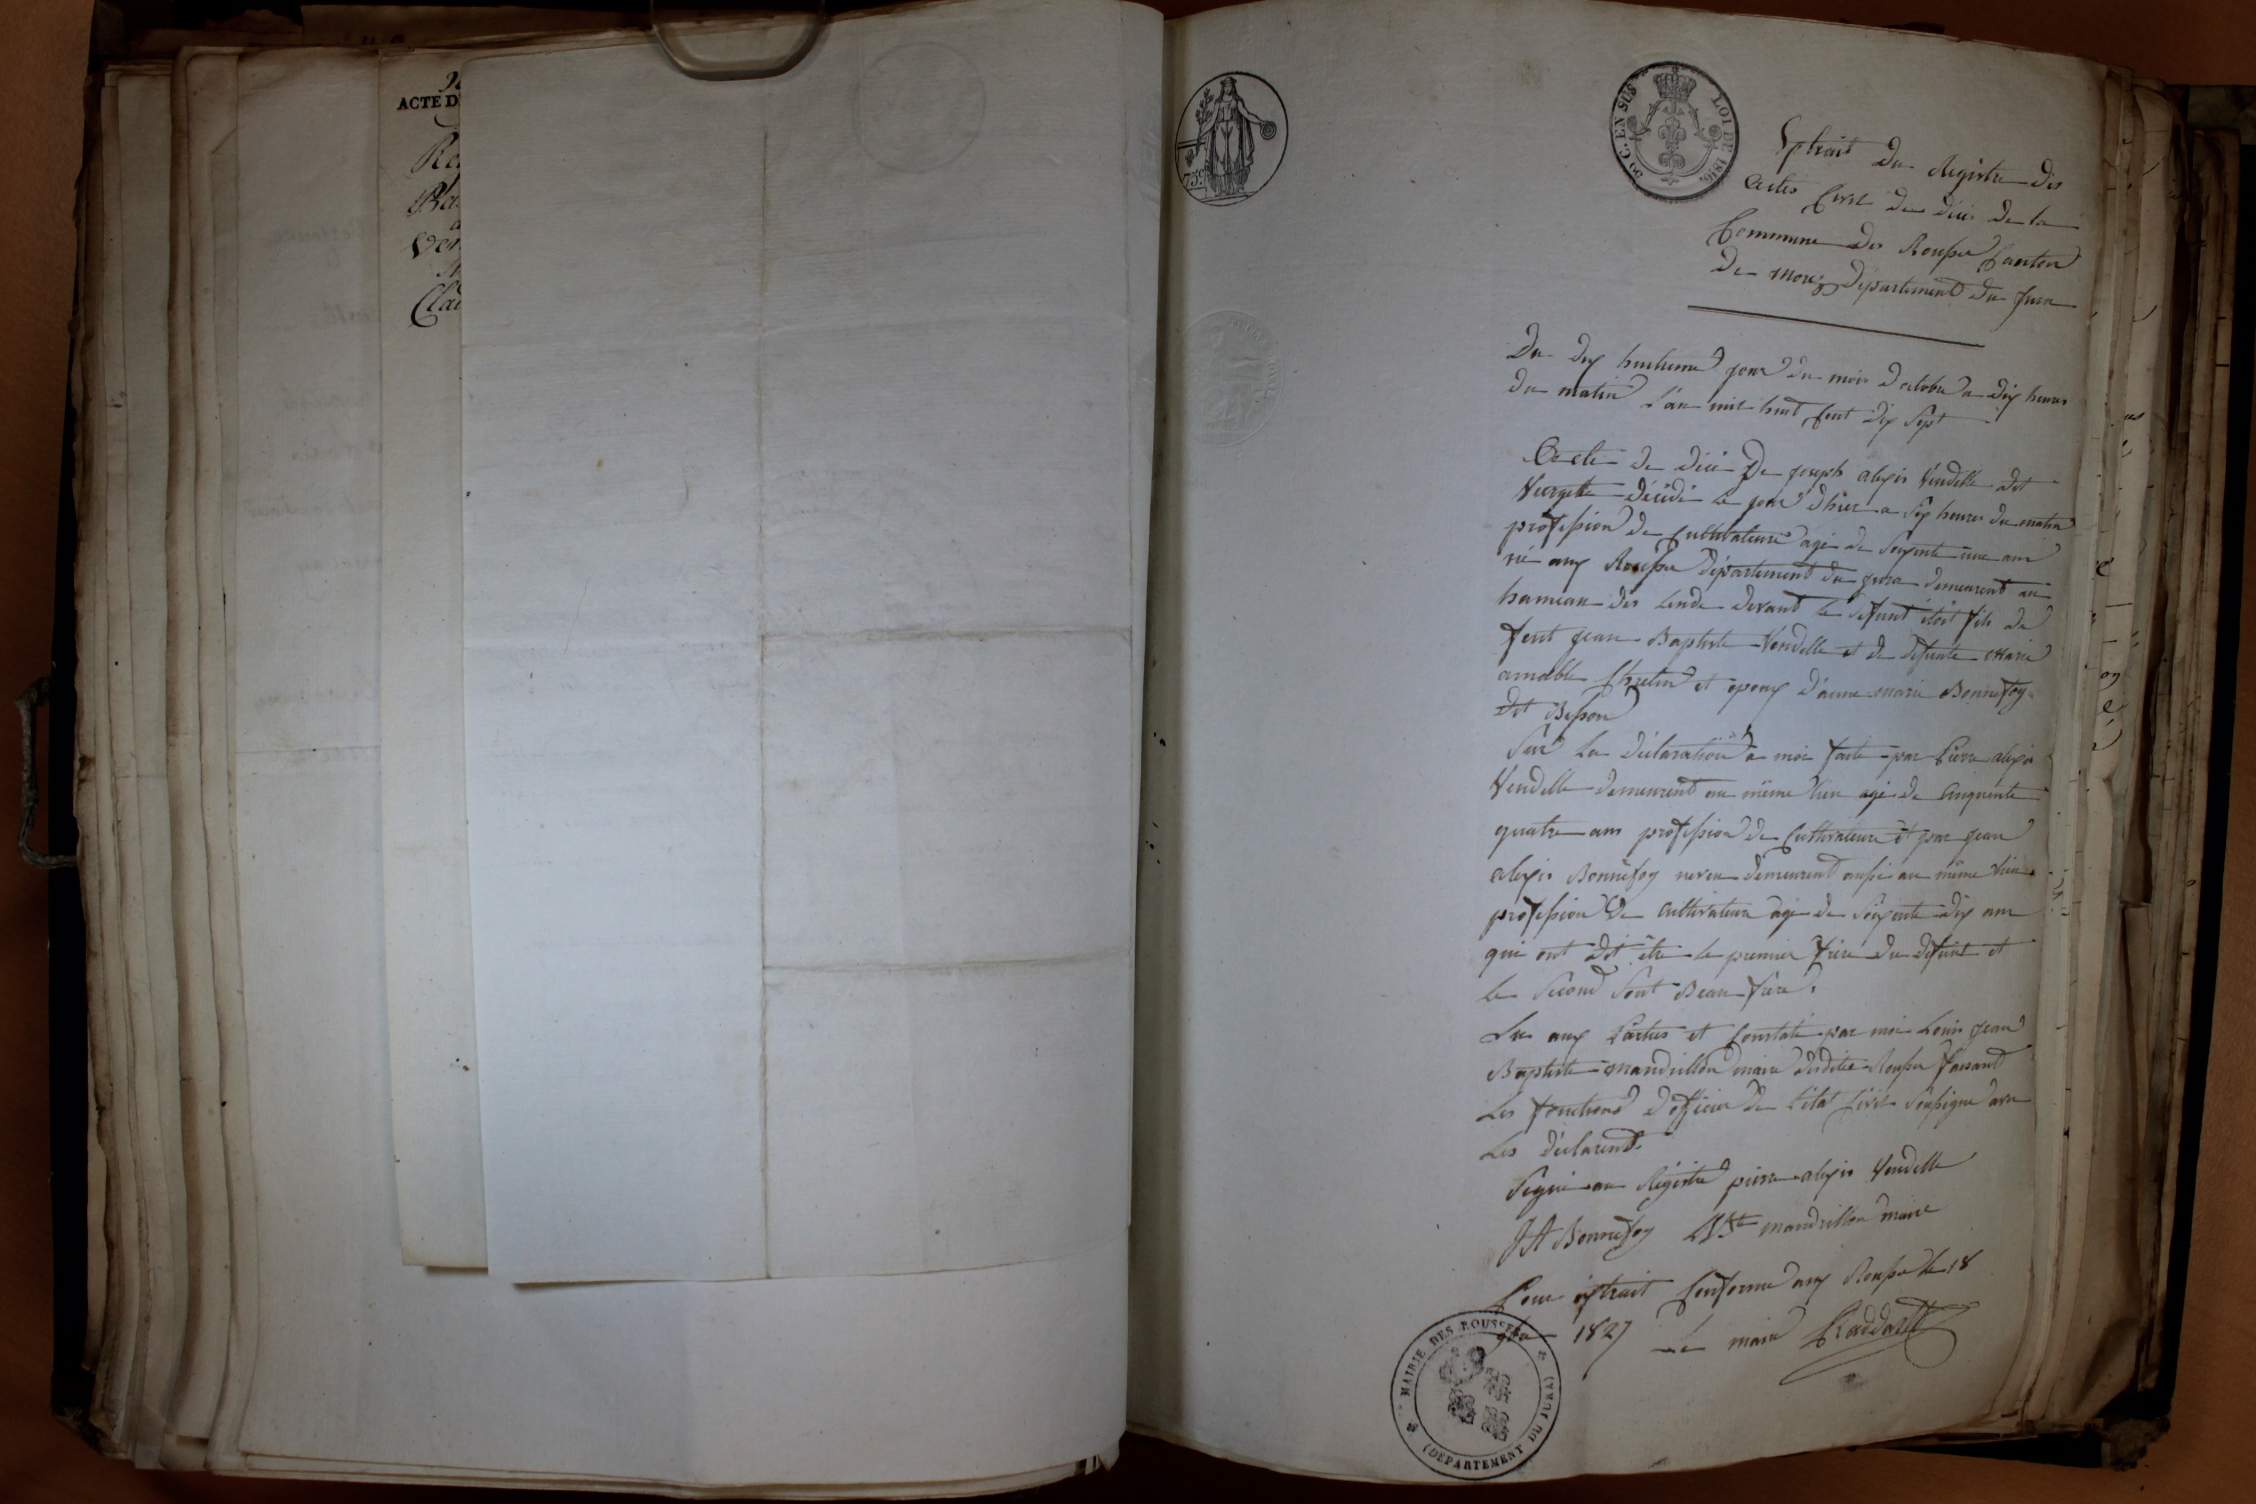 ACTE D
Clau
75 c
50 C. EN SUS
LOI DE 1816.
Extrait Du Registre des
Actes Civil des décé de la
Commune des Rousses Canton
De morez Departement du Jura
Du dix huitieme jour du mois d'octobre a dix heures
Du matin L'an mil huit Cent dix Sept
Acte de décé De joseph alexis Vandelle dit
décédé le jour d'hier a Six heures du matin
profession de Cultivateur agé de Soixente une ans
né aux Rousses département du jura demeurent au
hameau des Lande devant le defunt étoit fils de
feut jean Baptiste Vandelle et de defunte Marie
amable Chretin et epoux d'anne marie Bonnefoy
dit Besson
Sur La déclaration a moi faite par Pierre alexis
Vandelle demeurent au même lieu agé de Cinquente
quatre ans profession de Cultivateur et par jean
alexis Bonnefoy neveu demeurent aussi au même lieu
profession de Cultivateur agé de Soixente dix ans
qui ont dit être le premier frere du defunt et
le Second Sont Beau frere.
Lu aux Parties et Constaté par moi Louis jean
Baptiste mandrillon maire desdites Rousses faisant
Les fonctions d'officier de L'état Civil Soussigné avec
Les déclarents
Signé au Régistre pierre alexis Vandelle
J A Bonnefoy mandrillon maire
Pour extrait Conforme aux Rousses le 18
9bre 1827 Le maire
MAIRIE DES ROUSSES
(DÉPARTEMENT DU JURA)